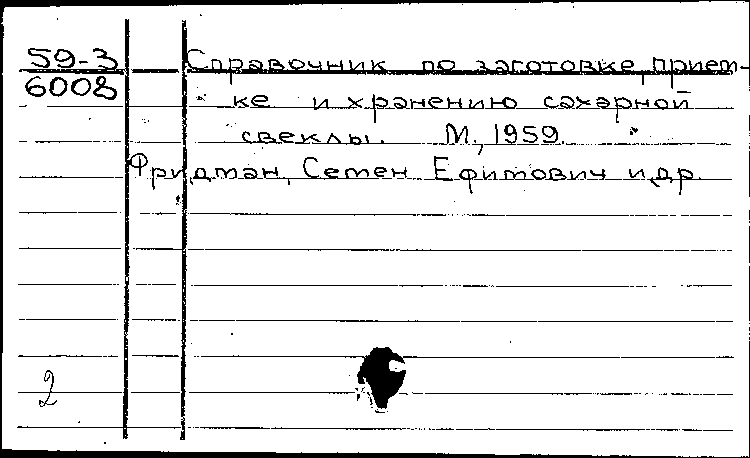 59-3 Справочник по заготовке, прием-
6008 ке и хранению сахарной
свеклы. М., 1959.
Фридман, Семен Ефимович и др.
2